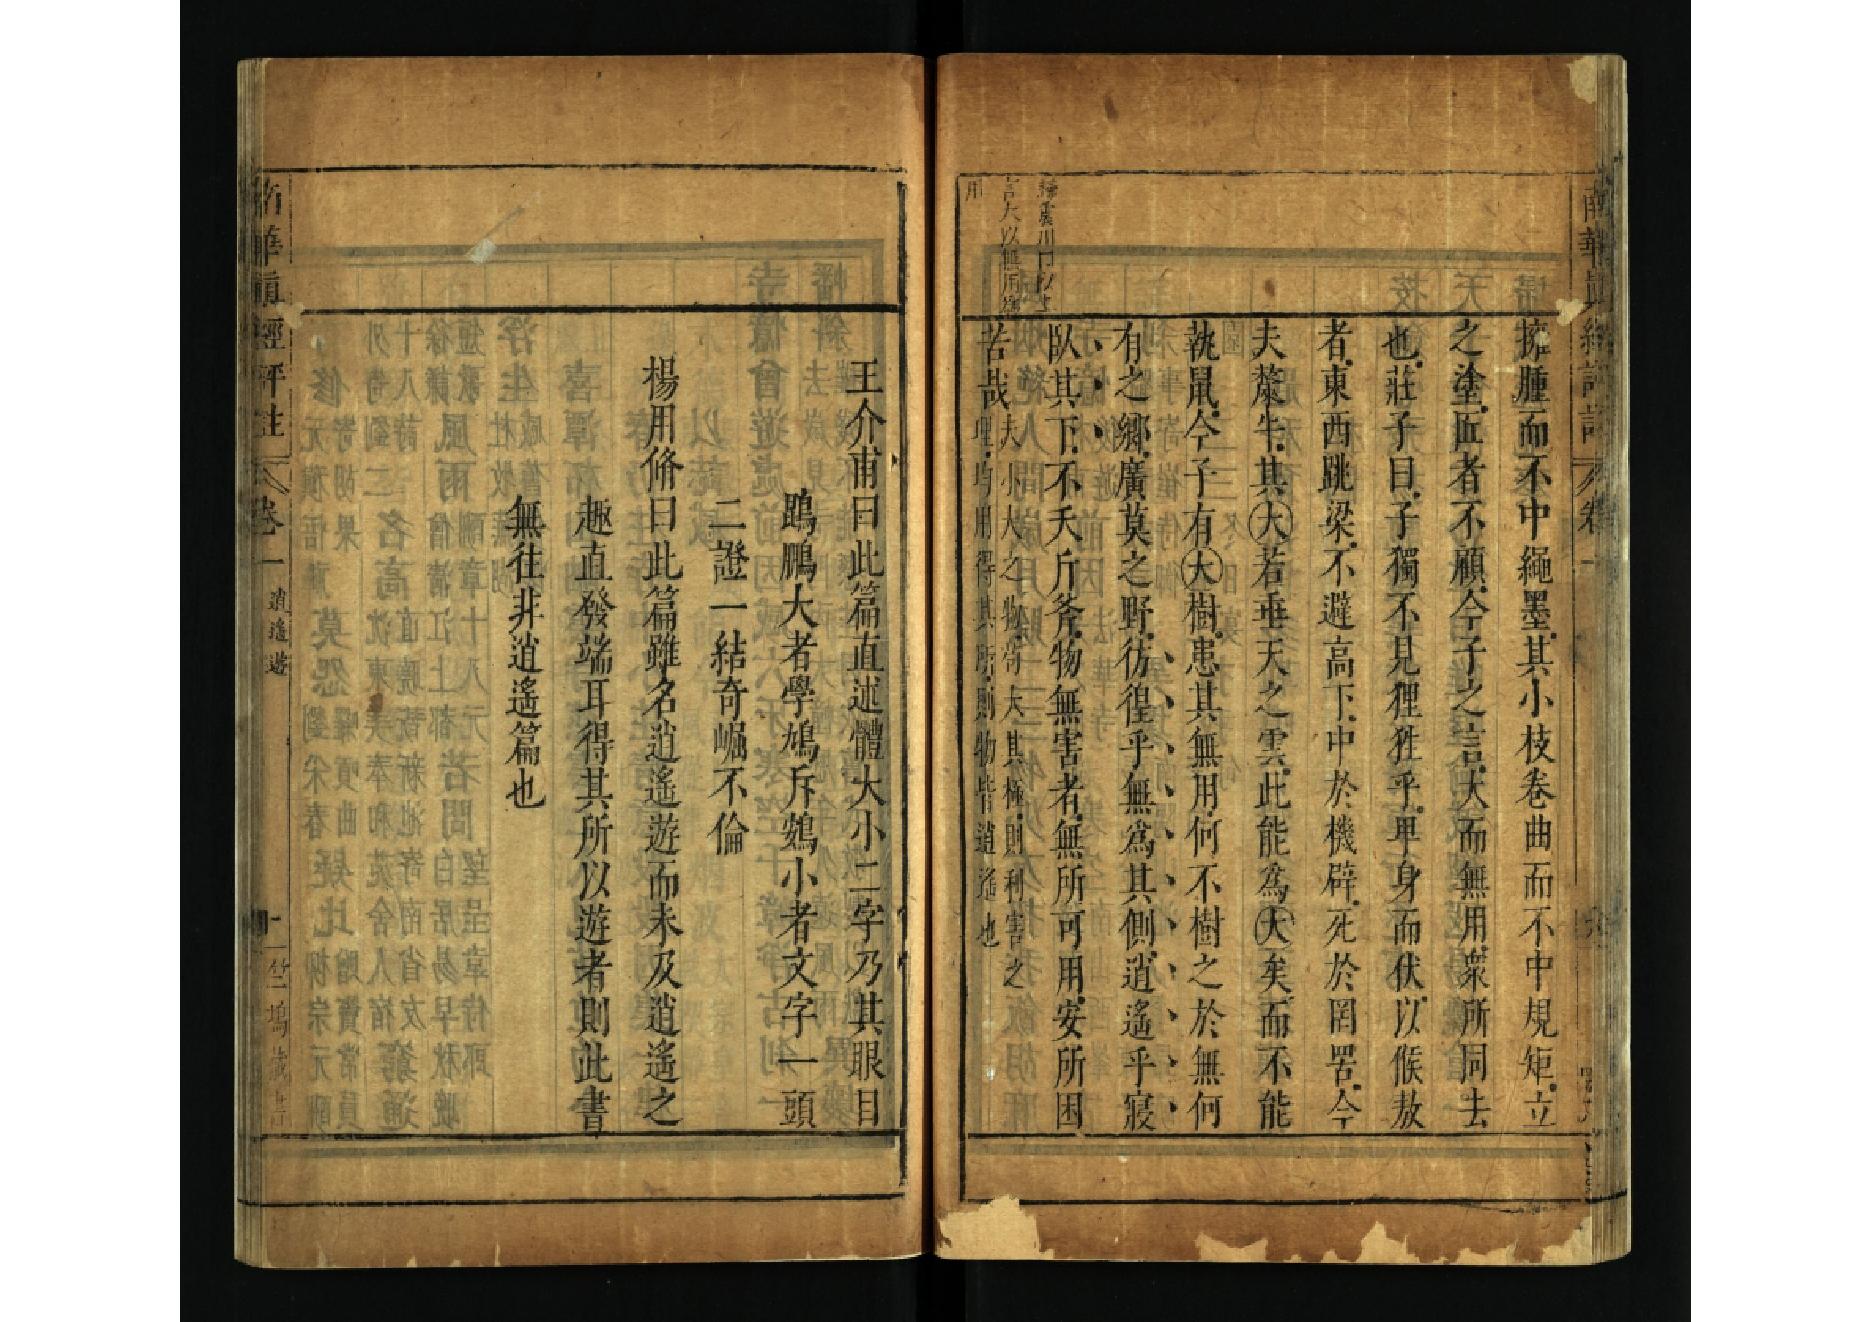 擁腫而不中繩墨其小枝卷曲而不中規矩立
之塗匠者不顧今子之言大而無用衆所同去
也莊子曰子獨不見狸狌乎卑身而伏以候敖
者東西跳梁不避高下中於機辟死於罔罟今
夫斄牛其大若垂天之雲此能為大矣而不能
執鼠今子有大樹患其無用何不樹之於無何
有之鄉廣莫之野彷徨乎無爲其側逍遙乎寢
臥其下不夭斤斧物無害者無所可用安所困
苦哉
夫小大之物苟大其極則利害之
理均用得其所則物皆逍遙也
言大以無用爲
用
王介甫曰此篇直述體大小二字乃其眼目
鵾鵬大者學鳩斥鷃小者文字一頭
二證一結奇崛不倫
楊用脩曰此篇雖名逍遙遊而未及逍遙之
趣直發端耳得其所以遊者則此書
無往非逍遙篇也
南華眞經評註
卷一
逍遙遊
竺塢藏書